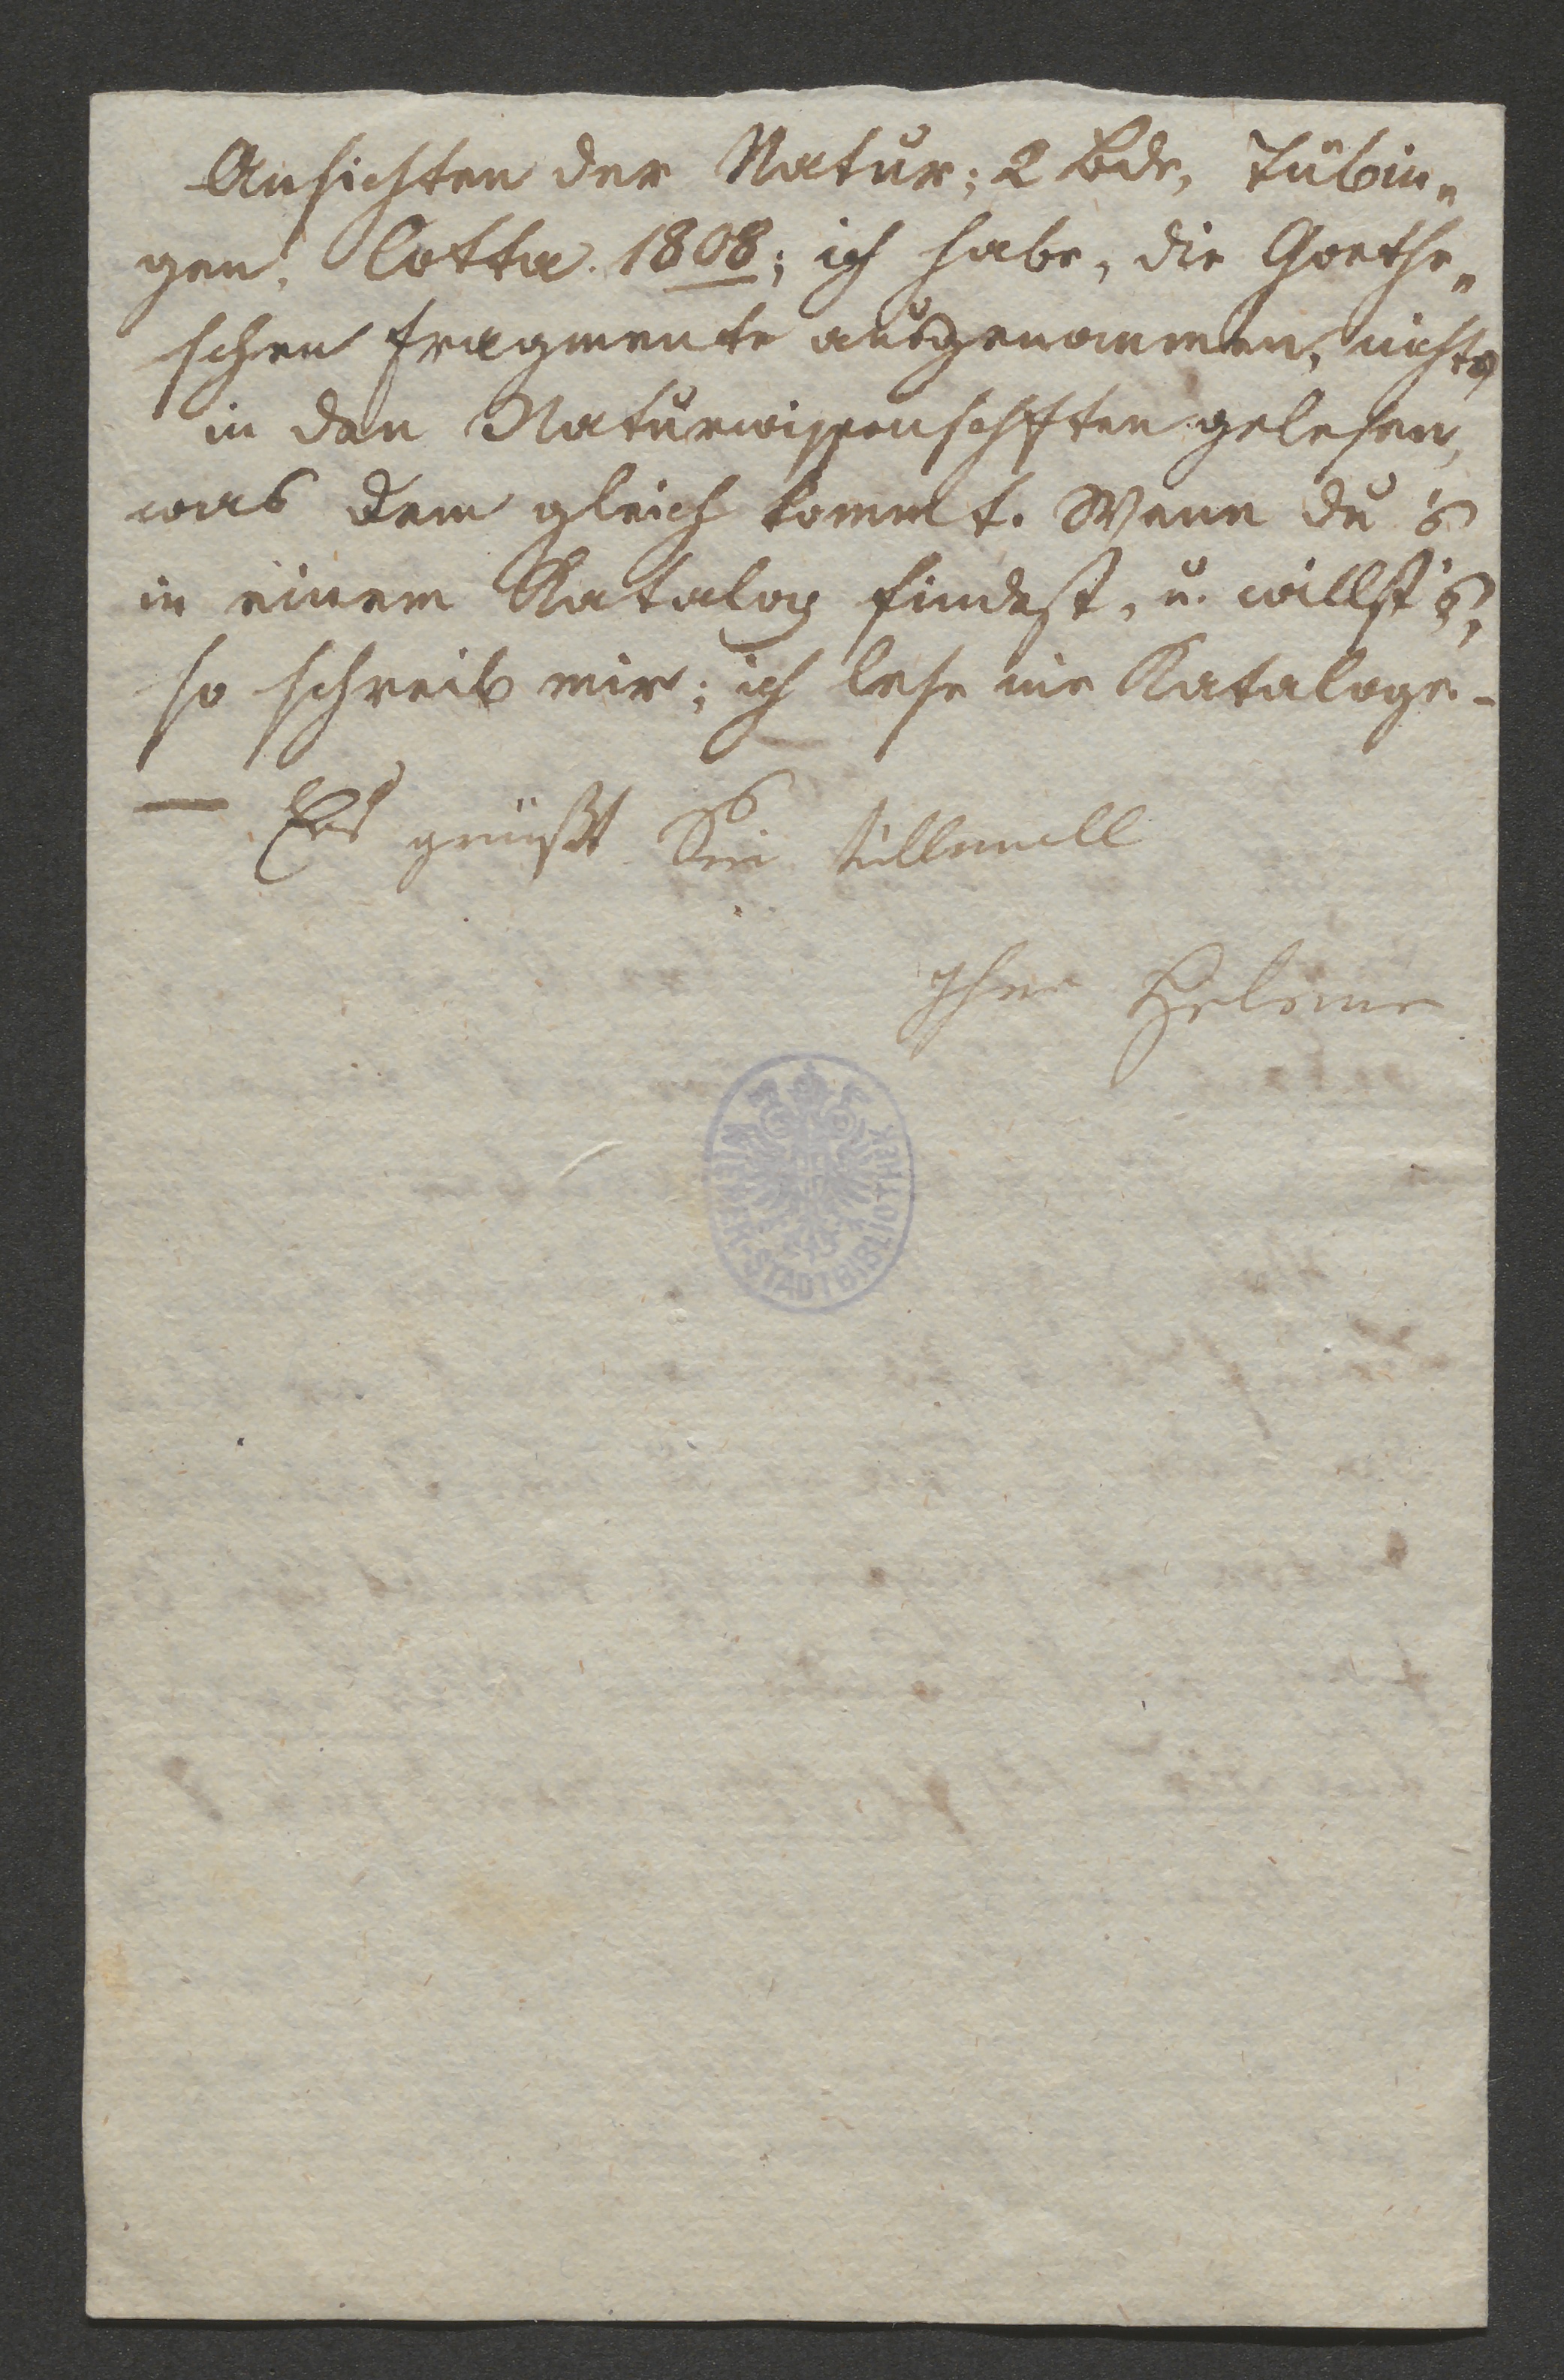 Ansichten der Natur; 2 Bde, Tübin„
gen, Cotta. 1808; ich habe, die Goethe„
schen Fragmente ausgenommen, nichts
in den Naturwissenschften gelesen,
was dem gleich kommt. Wenn du 's
in einem Katalog findest, u. willst's,
so schreib mir; ich lese nie Kataloge.-
— Es grüßt Sie
Ihre Helene
WIENER STADTBIBLIOTHEK